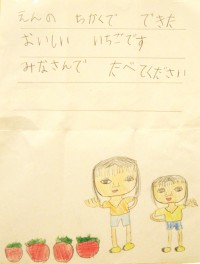 えんの ちかくで できた
おいしい いちごです
みなさんで たべてください